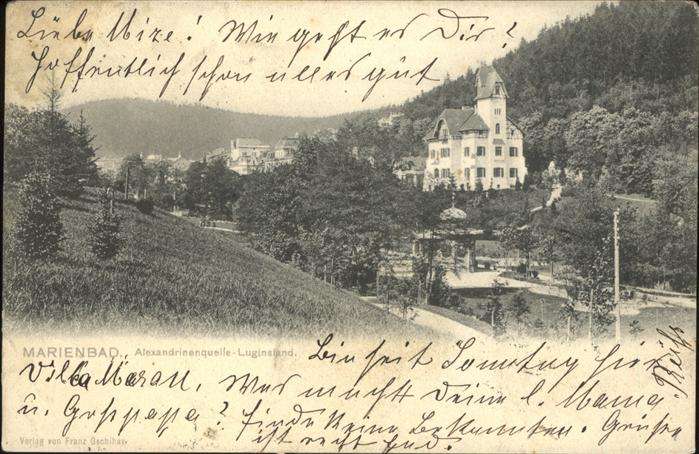 Liebe Mize! Wie geht es Dir?
Hoffentlich schon alles gut
MARIENBAD. Alexandrinenquelle-Luginsland.
Bin seit Sonntag hier
Villa Moran. Was macht Deine l. Mama
u. Großpapa? Finde keine Bekannten. Grüße
ist recht
Verlag von Franz Gschihay